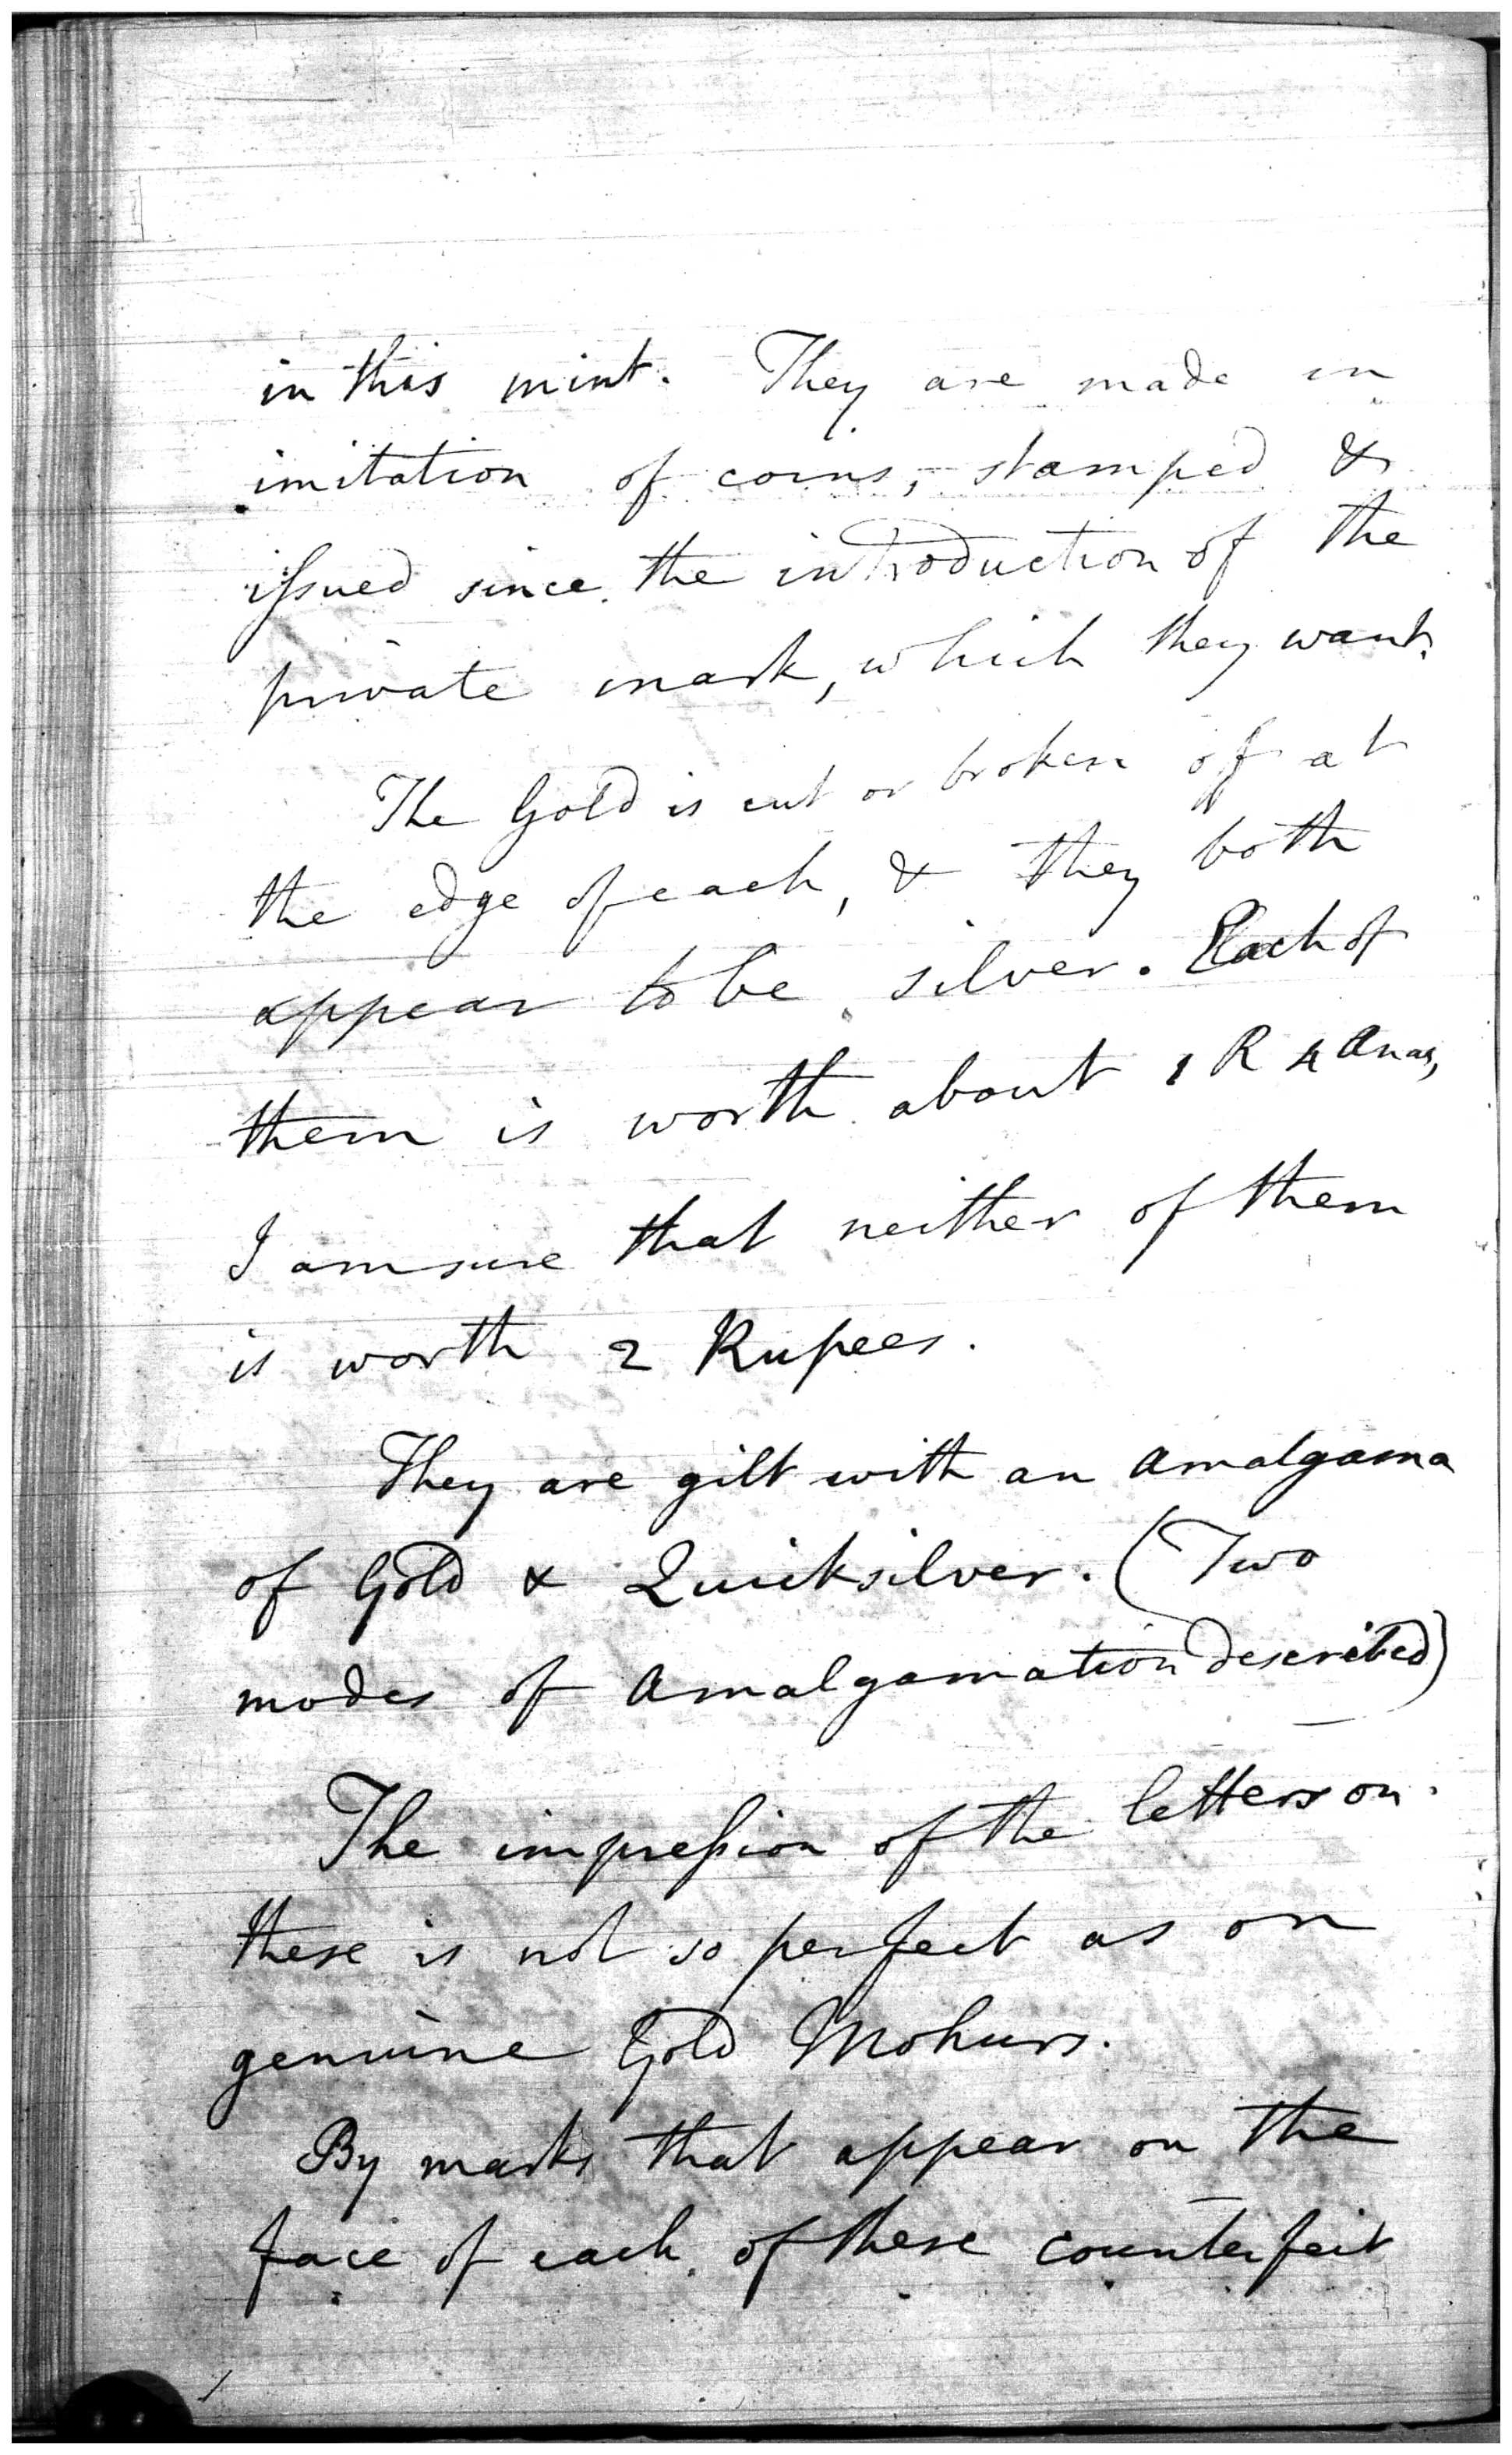 in this mint. They are made in
imitation of coins, stamped &
issued since the introduction of the
private mark, which they want.
The Gold is cut or broken off at
the edge of each, & they both
appear to be silver. Each of
them is worth about 1 R 4 Anas,
I am sure that neither of them
is worth 2 Rupees.
They are gilt with an Amalgama
of Gold & Quicksilver. (Two
modes of Amalgamation described)
The impression of the letters on
these is not so perfect as on
genuine Gold Mohurs.
By marks that appear on the
face of each of these counterfeit